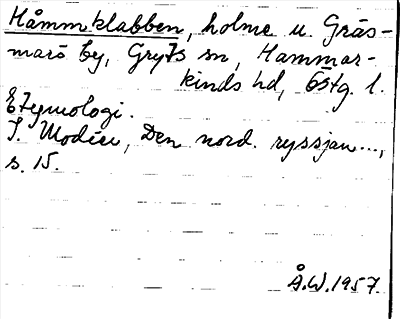 Håmmklabben, holme u. Gräs-
marö by, Gryts sn, Hammar-
kinds hd, Östg. l.
Etymologi.
I. Modéer, Den nord. ryssjan...,
s. 15.
Å.W.1957.